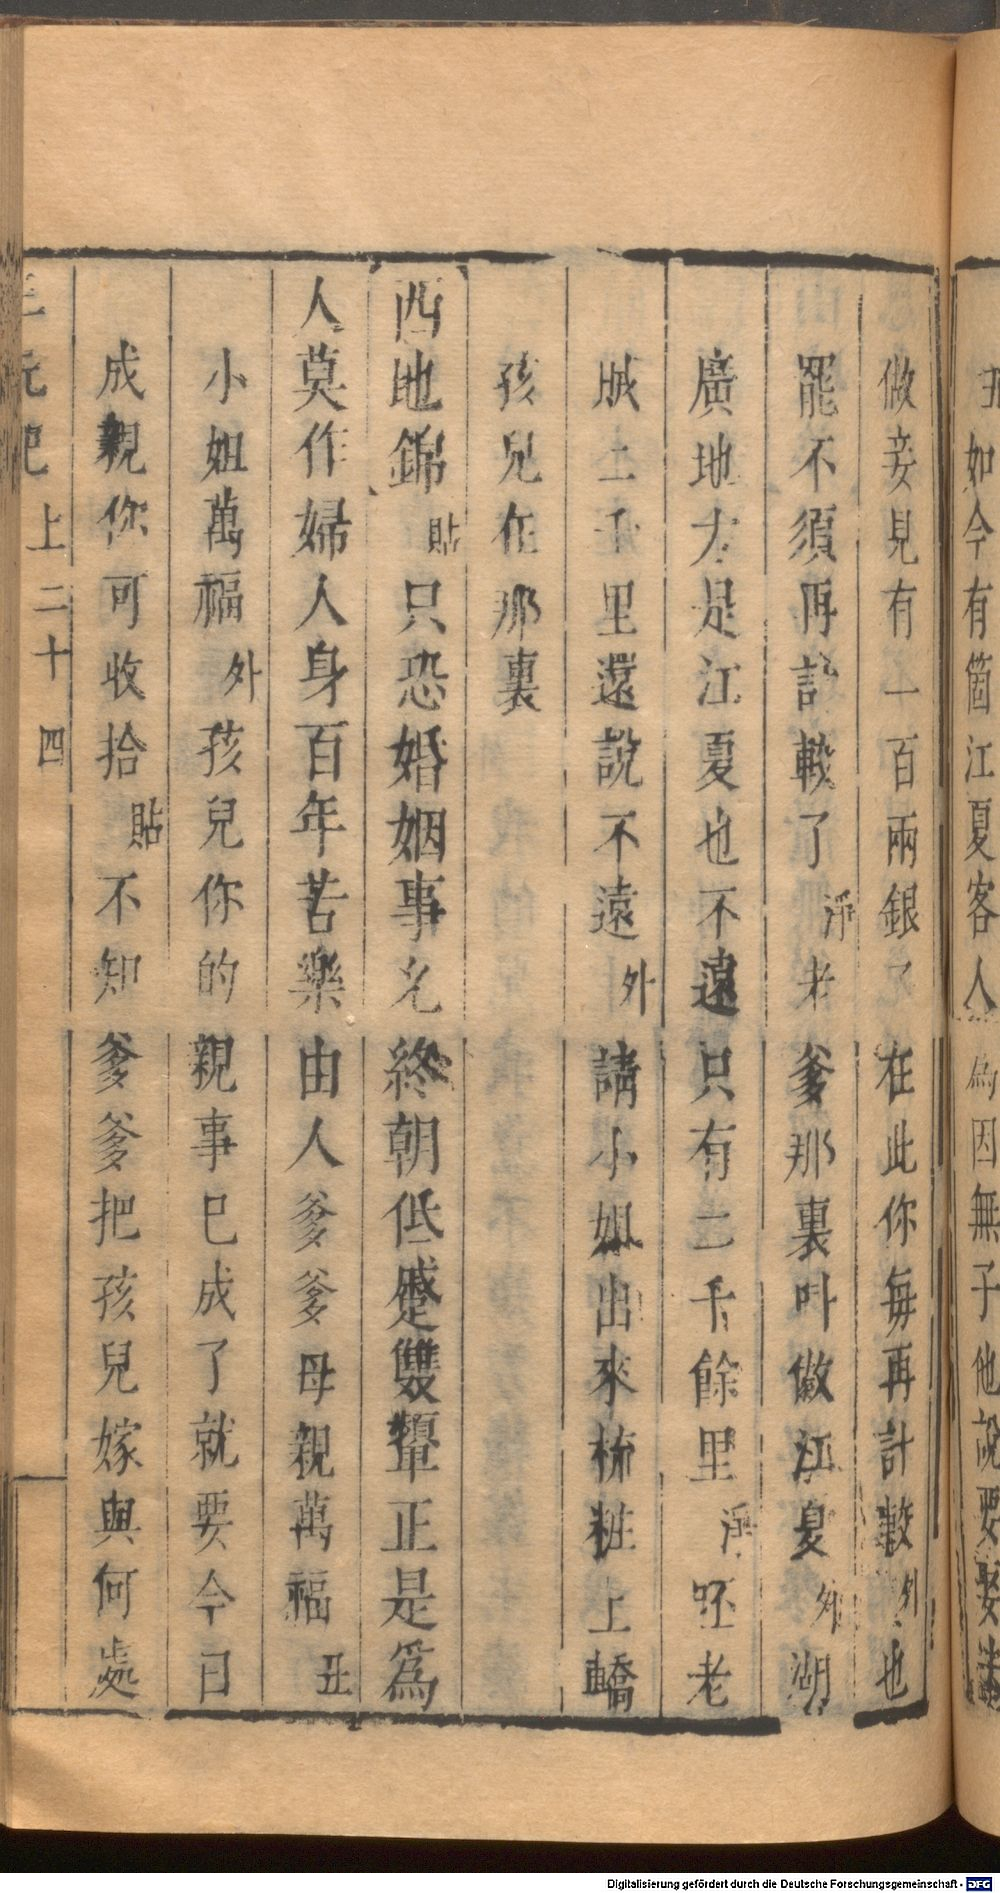 丑如今有箇江夏客人爲因無子他說要娶
做妾見有一百兩銀子在此你每再計較外也
罷不須再計較了淨老爹那裏叫做江夏外湖
廣地方是江夏也不遠只有二千餘里淨呸老
賊二千里還說不遠外請小姐出來梳粧上轎
孩兒在那裏
西地錦貼只恐婚姻事允終朝低蹙雙顰正是爲
人莫作婦人身百年苦樂由人爹爹母親萬福丑
小姐萬福外孩兒你的親事已成了就要今日
成親你可收拾貼不知爹爹把孩兒嫁與何處
三元記 上二十四
Digitalisierung gefördert durch die Deutsche Forschungsgemeinschaft - DFG